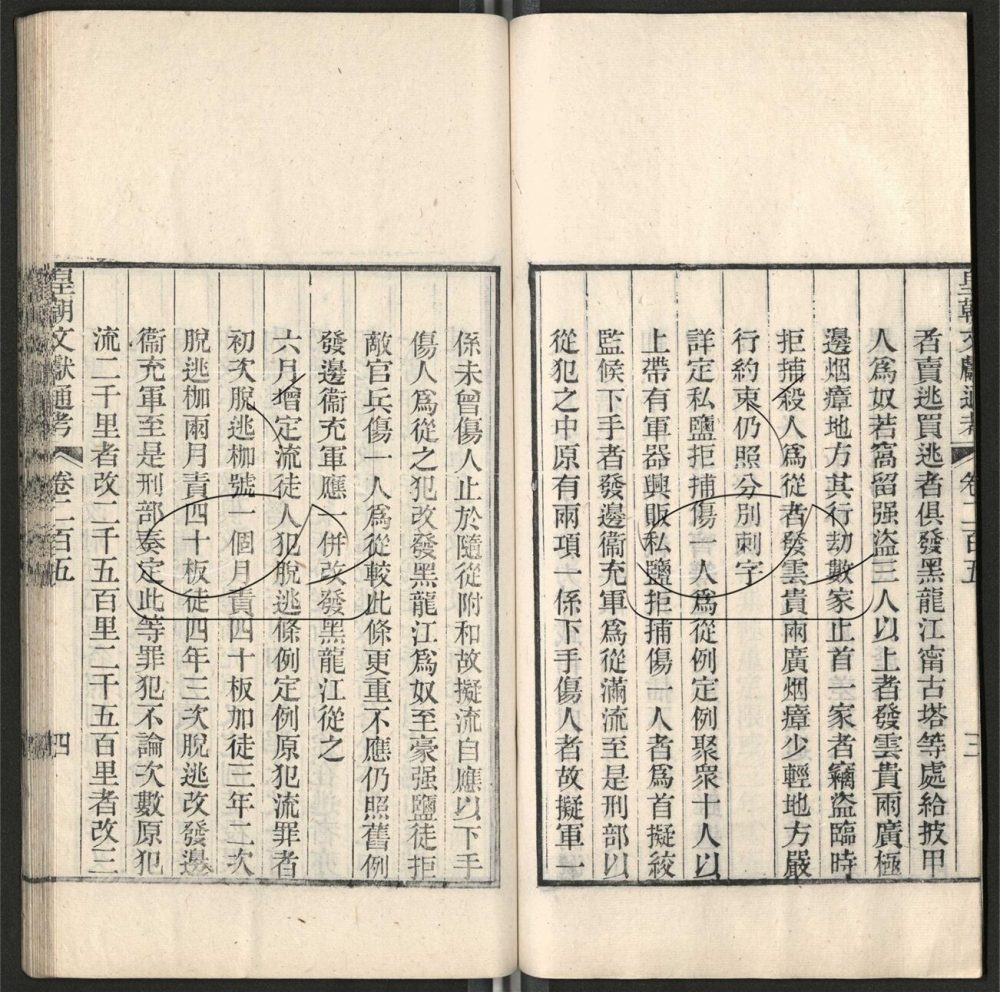 皇朝文獻通考 卷二百五 三
者賣逃買逃者俱發黑龍江甯古塔等處給披甲
人爲奴若窩留强盜三人以上者發雲貴兩廣極
邊烟瘴地方其行劫數家止首一家者竊盜臨時
拒捕殺人爲從者發雲貴兩廣烟瘴少輕地方嚴
行約束仍照分別刺字
詳定私鹽拒捕傷一人爲從例定例聚衆十人以
上帶有軍器興販私鹽拒捕傷一人者爲首擬絞
監候下手者發邊衞充軍爲從滿流至是刑部以
從犯之中原有兩項一係下手傷人者故擬軍一
係未曾傷人止於隨從附和故擬流自應以下手
傷人爲從之犯改發黑龍江爲奴至豪强鹽徒拒
敵官兵傷一人爲從較此條更重不應仍照舊例
發邊衞充軍應一併改發黑龍江從之
六月增定流徒人犯脫逃條例定例原犯流罪者
初次脫逃枷號一個月責四十板加徒三年二次
脫逃枷兩月責四十板徒四年三次脫逃改發邊
衞充軍至是刑部奏定此等罪犯不論次數原犯
流二千里者改二千五百里二千五百里者改三
皇朝文獻通考 卷二百五 四